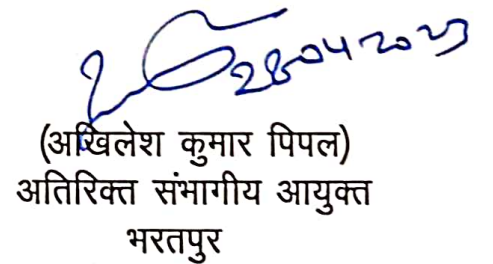 28042023
(अखिलेश कुमार पिपल)
अतिरिक्त संभागीय आयुक्त
भरतपुर